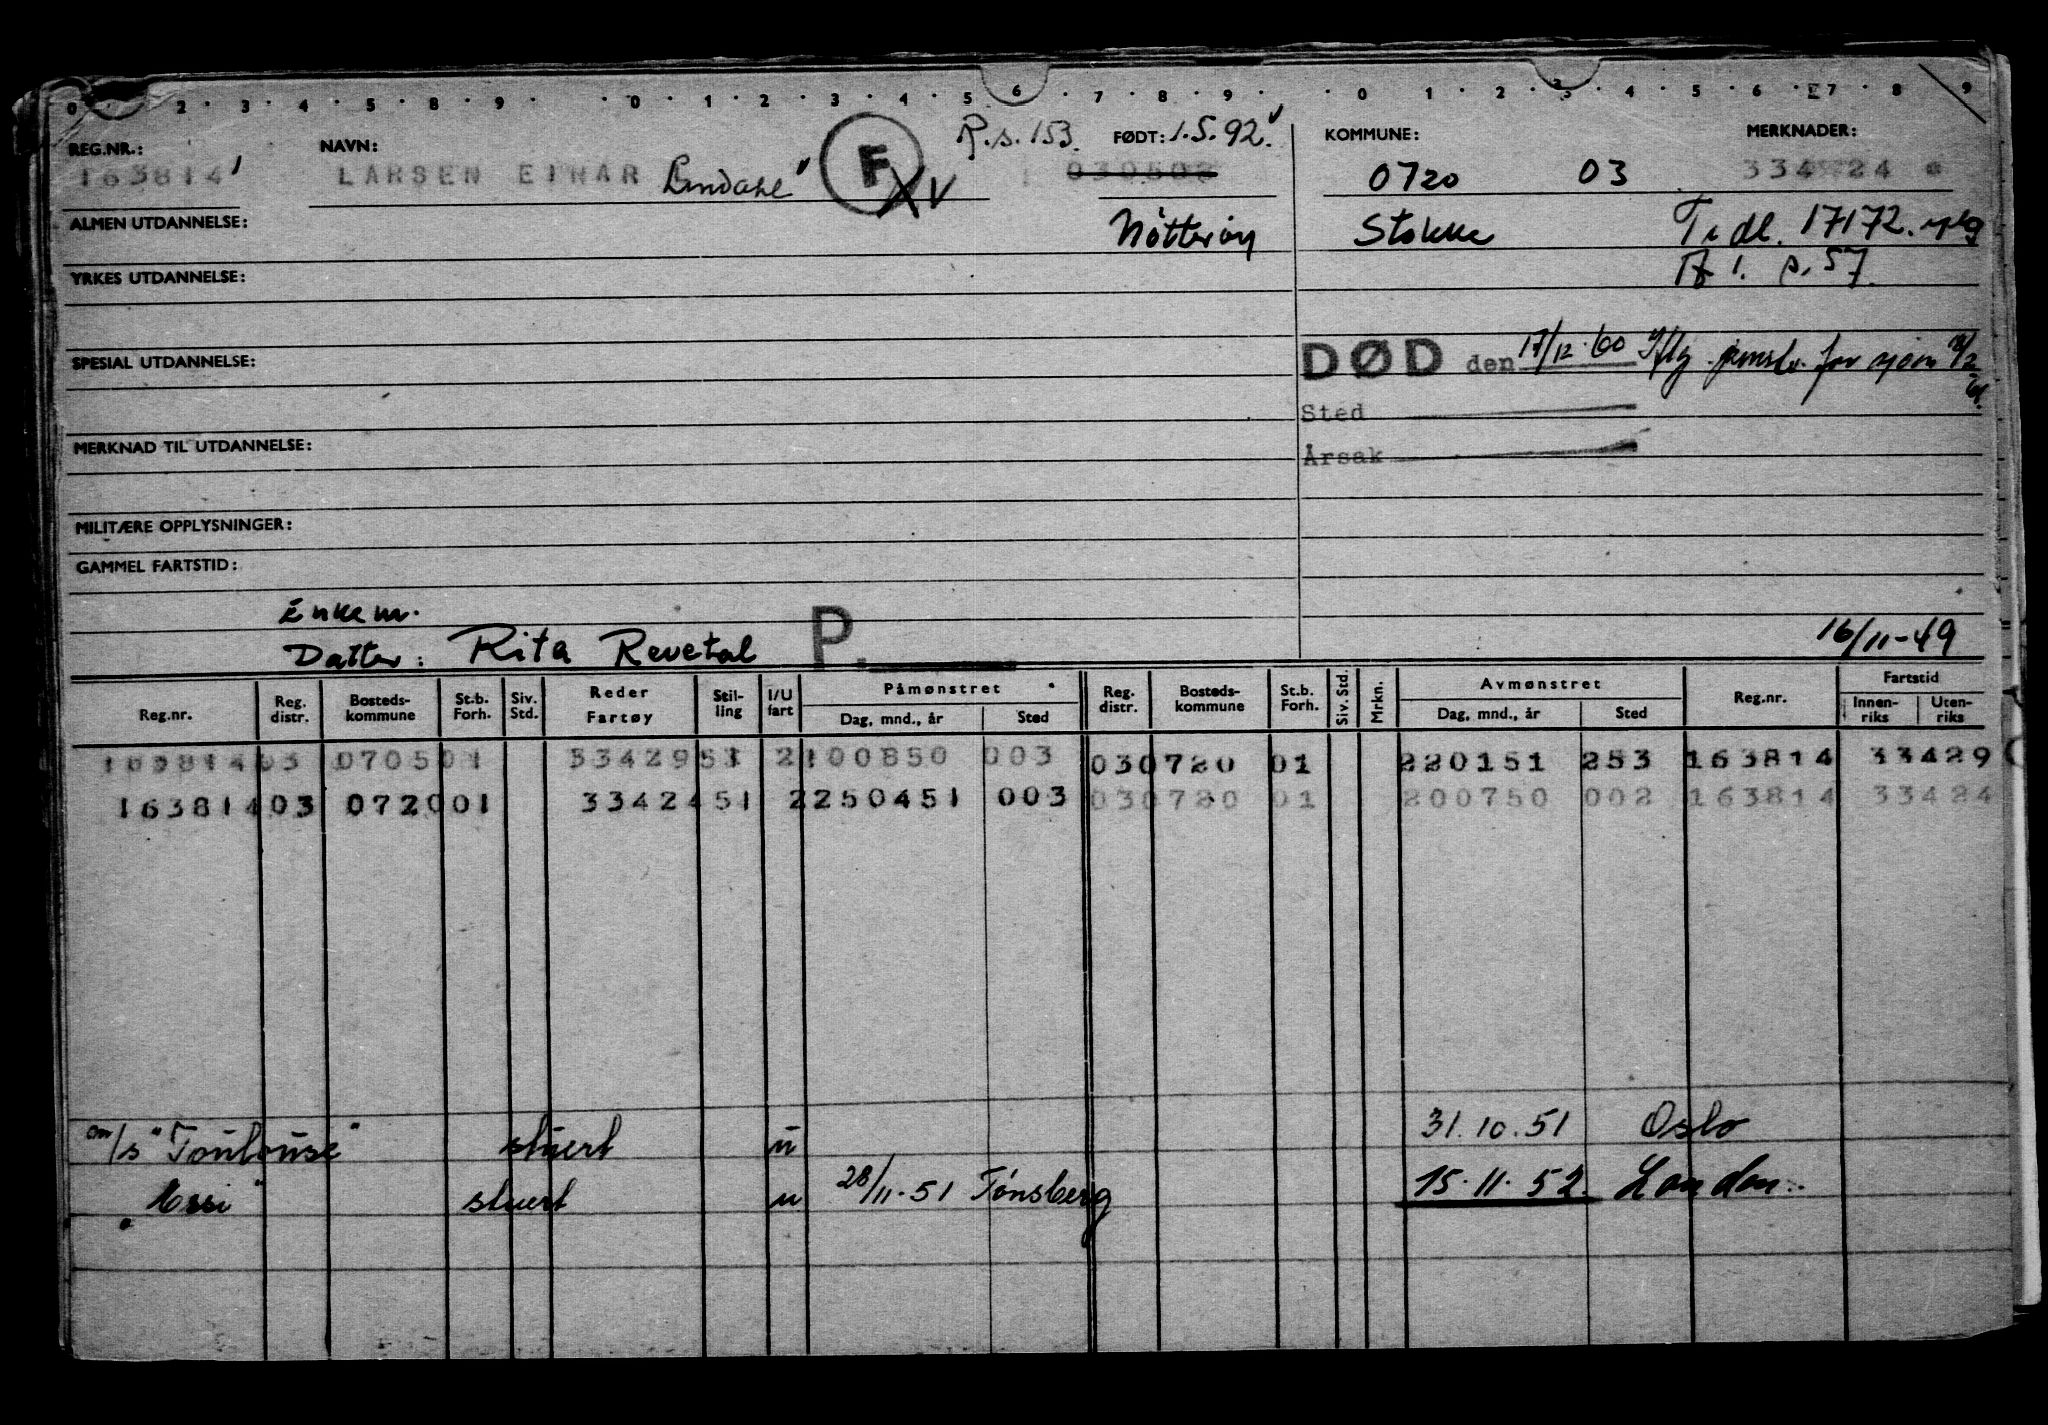 0 2 3 4 5 8 9 0 1 2 3 4 5 6 7 8 9 0 1 2 3 4 5 6 7 8 9
REG.NR.: NAVN: R.s. 153. FØDT: 1.5.92. KOMMUNE: MERKNADER:
163814 LARSEN EINAR F XV 030502 0720 03 334 24
ALMEN UTDANNELSE: Nøtterøy Stokke Tidl. 17172.
YRKES UTDANNELSE: 1. p. 57.
SPESIAL UTDANNELSE: DØD den 17/12.60 for
Sted
MERKNAD TIL UTDANNELSE: Årsak
MILITÆRE OPPLYSNINGER:
GAMMEL FARTSTID:
Enkem.
Datter: Rita Revetal P. 16/11-49
Reg.nr. Reg. distr. Bosteds-kommune St.b. Forh. Siv. Std. Reder Fartøy Stil-ling I/U fart Påmønstret Dag, mnd., år Sted Reg. distr. Bosteds-kommune St.b. Forh. Siv. Std. Mrkn. Avmønstret Dag, mnd., år Sted Reg.nr. Fartstid Innen-riks Uten-riks
163814 03 0705 01 33429 51 2 100850 003 03 0720 01 220151 253 163814 33429
163814 03 0720 01 33424 51 2 250451 003 03 0720 01 200750 002 163814 33424
m/s "Toulouse" stuert u 31.10.51 Oslo
" Essi" stuert u 28/11.51 Tønsberg 15.11.52. London.